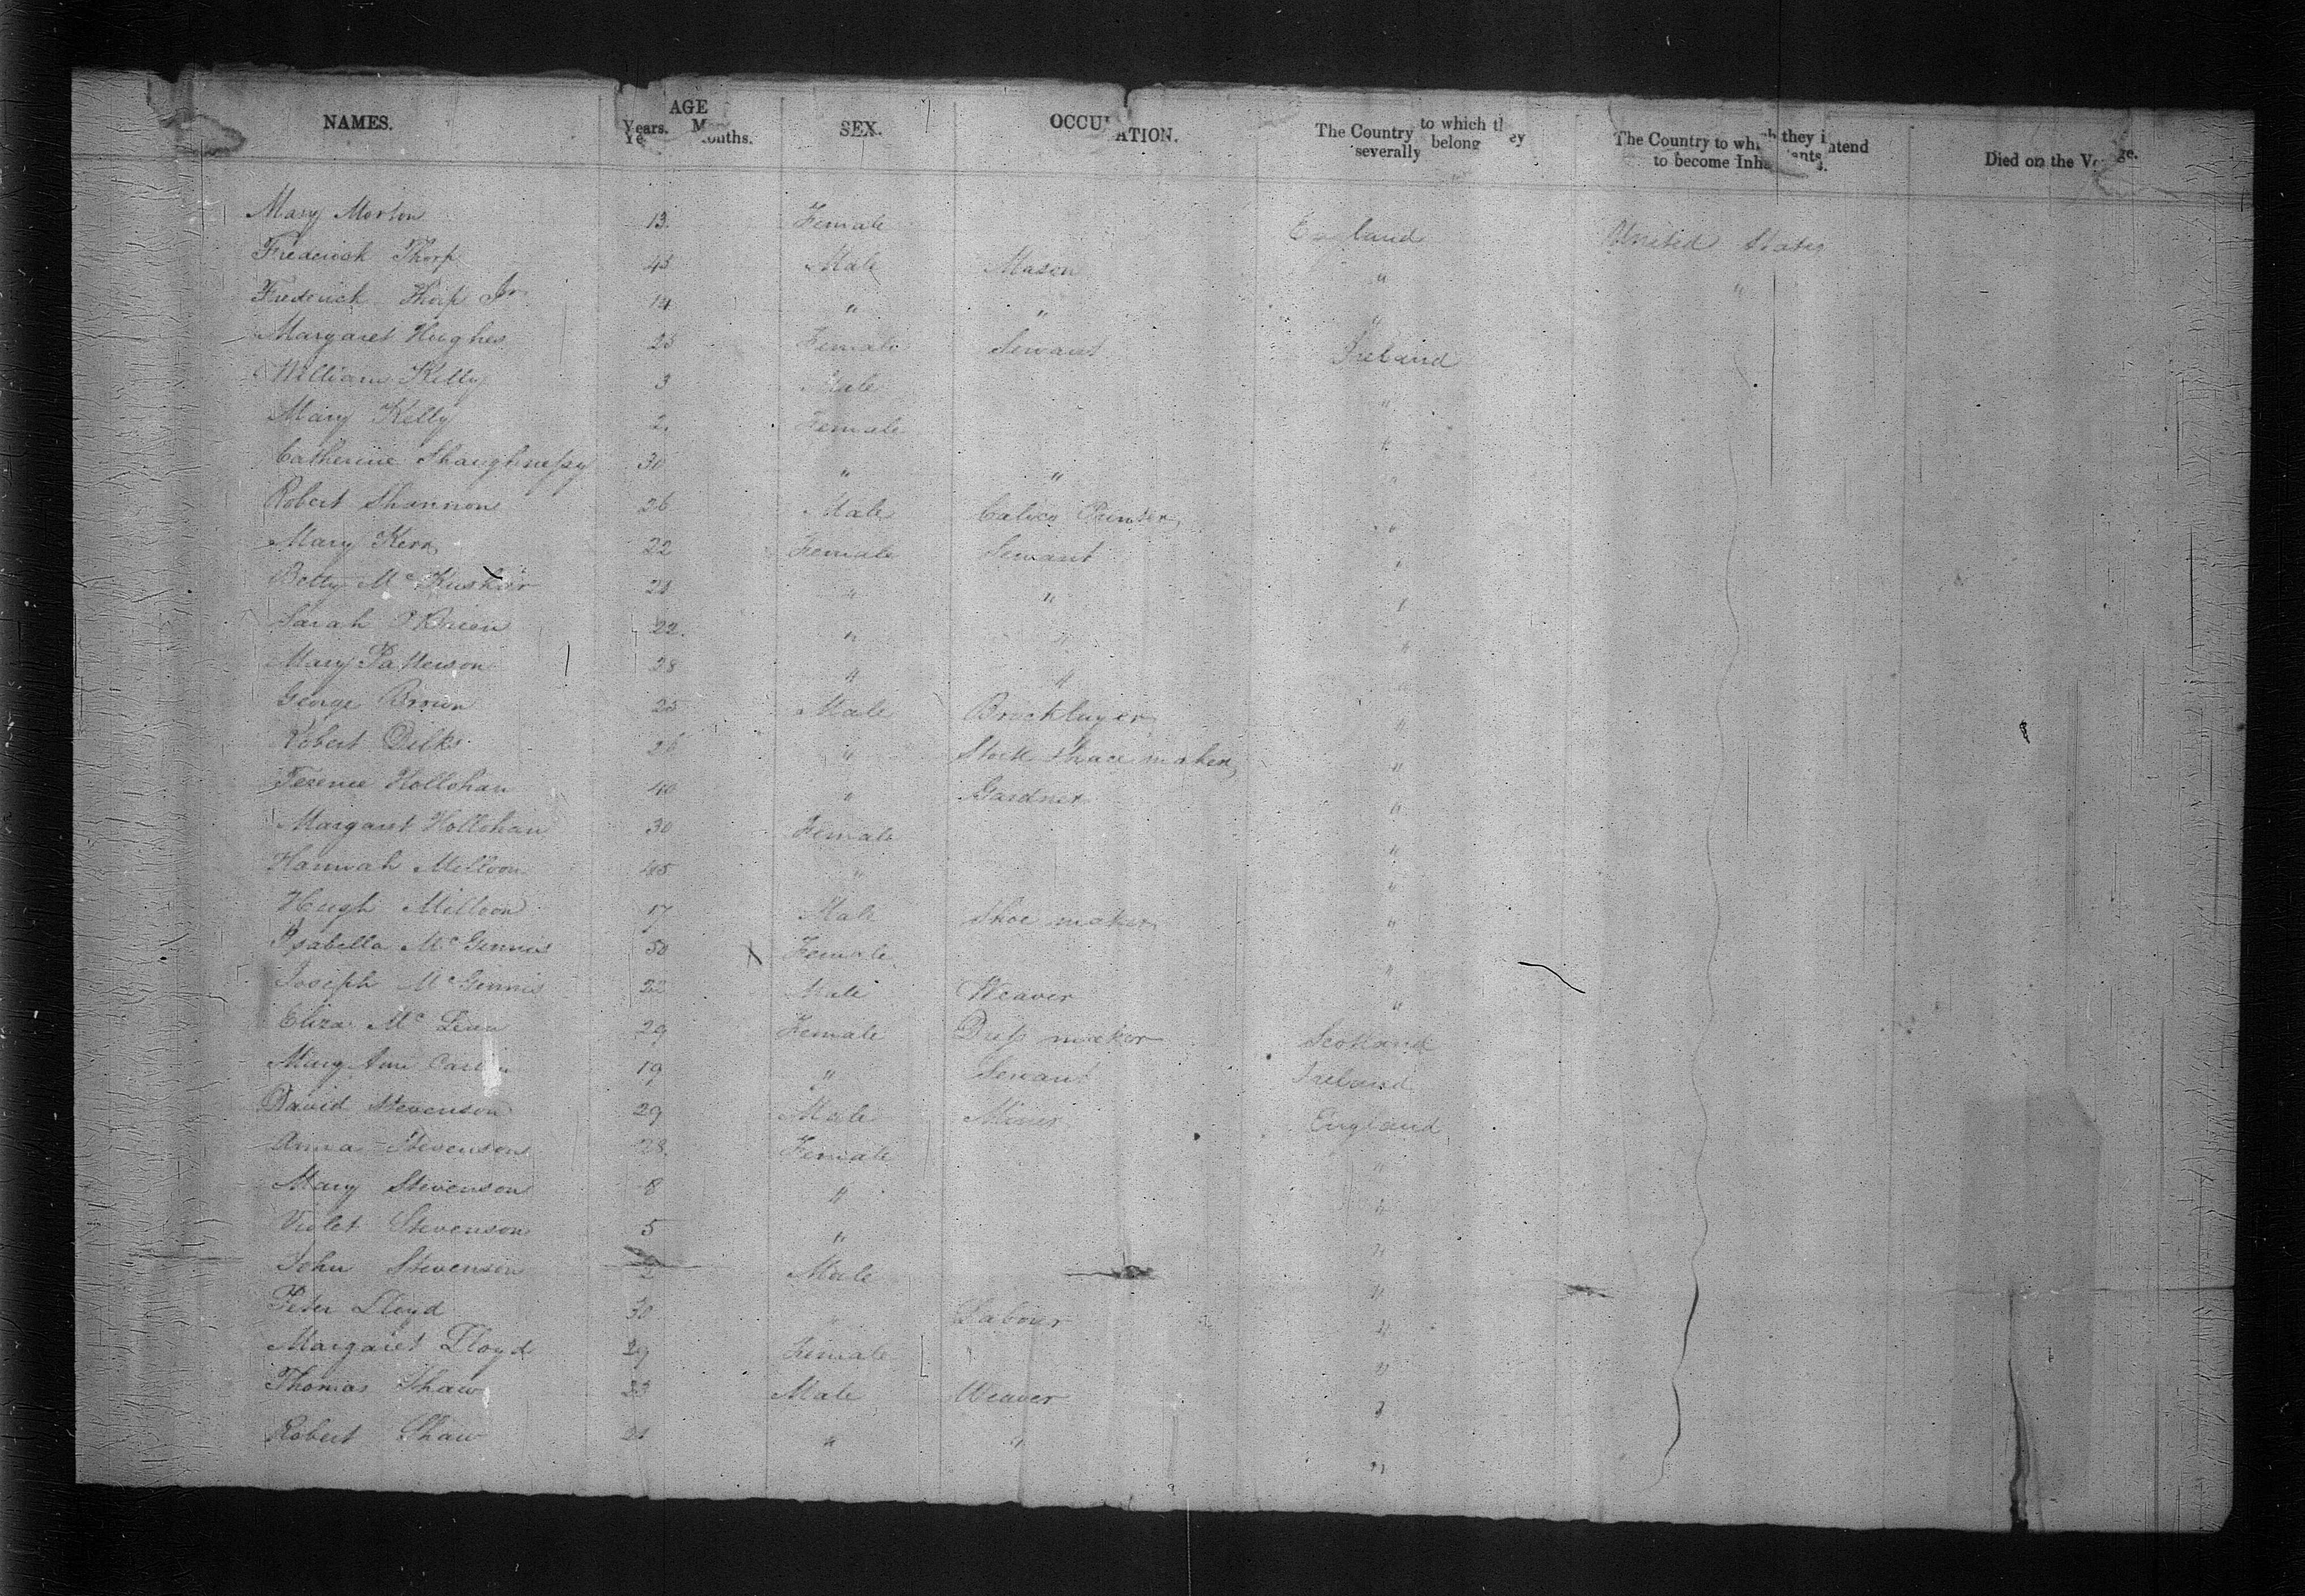 NAMES. AGE Years. Months. SEX. OCCUPATION. The Country to which they severally belong The Country to which they intend to become Inhabitants. Died on the Voyage.
Mary Morton 13 Female England United States
Frederick Thorp 43 Male Mason " "
Frederick Thorp Jr. 14 " " "
Margaret Hughes 25 Female Servant Ireland
William Kelly 3 Male "
Mary Kelly 2 Female "
Catherine Shaughnessy 30 " " "
Robert Shannon 26 Male Calico Printer "
Mary Kerr 22 Female Servant "
Betty Mc 21 " " "
Sarah O'Brien 22 " " "
Mary Patterson 28 " " "
George Brown 25 Male Bricklayer "
Robert Dilks 26 " Stock maker "
Terence Hollohan 40 " Gardner "
Margaret Hollohan 30 Female "
Hannah Milloon 45 " "
Hugh Milloon 17 Male Shoe maker "
Isabella McGinnis 50 Female "
Joseph McGinnis 22 Male Weaver "
Eliza Mc Lean 29 Female Dress maker Scotland
Mary Ann 19 " Servant Ireland
David Stevenson 29 Male Miner England
Anna Stevenson 28 Female "
Mary Stevenson 8 " "
Violet Stevenson 5 " "
John Stevenson 2 Male "
Peter Lloyd 30 " Labour "
Margaret Lloyd 29 Female "
Thomas Shaw 23 Male Weaver "
Robert Shaw 21 " " "